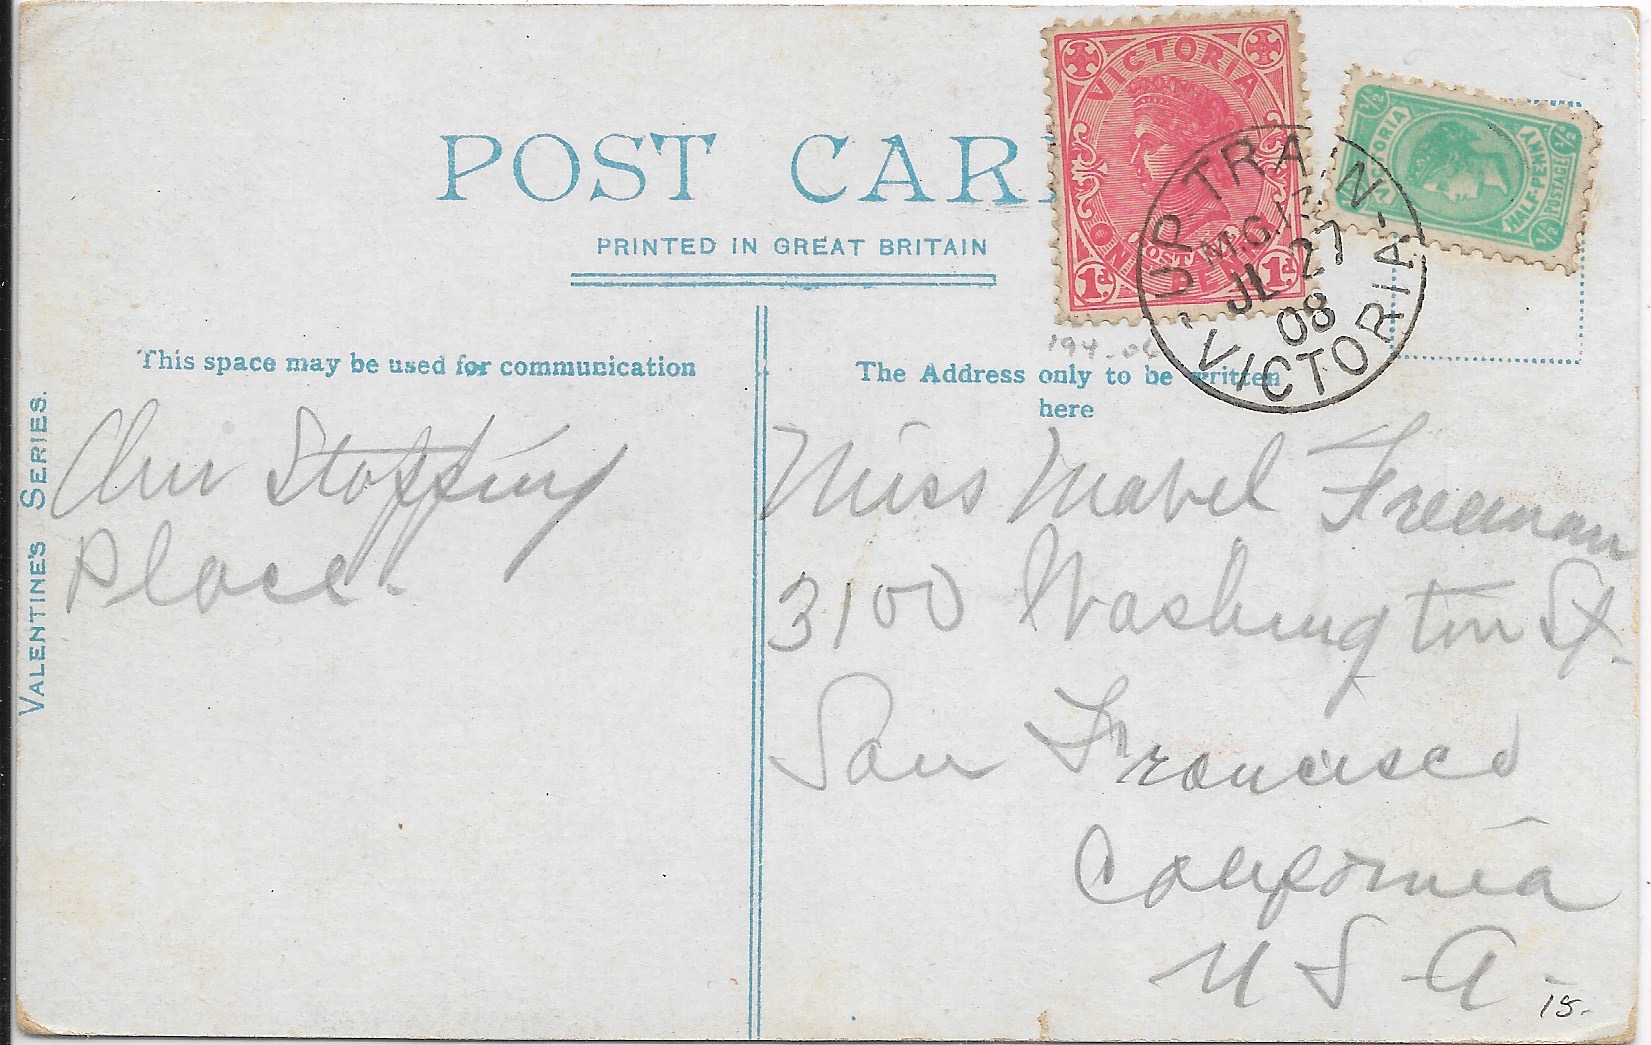 POST CAR
PRINTED IN GREAT BRITAIN
VICTORIA
1d POSTAGE 1d
ONE PENNY
½ ½
VICTORIA
HALF-PENNY
½ POSTAGE ½
UP TRAIN
JL 27
08
VICTORIA
This space may be used for communication
The Address only to be written
here
VALENTINE'S SERIES.
Our Stopping
Place.
Miss Mabel Freeman
3100 Washington St.
San Francisco
California
U S A.
15.